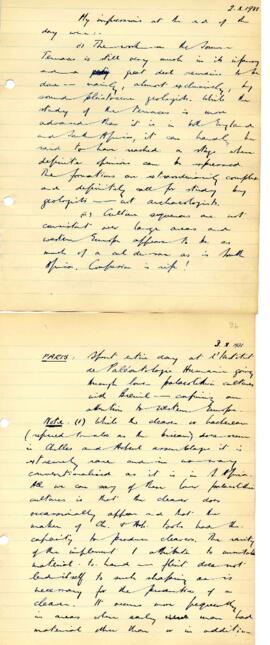 2.X.1931
My impressions at the end of the
day were:-
(1) The work on the Somme
Terraces is still very much in its infancy
and a great deal remains to be
done – mainly, almost exclusively, by
sound pleistocene geologists. While the
study of the terraces is more
advanced than it is in both England
and South Africa, it can hardly be
said to have reached a stage where
definite opinions can be expressed.
The formations are extraordinarily complex
and definitely call for study by
geologists – not archaeologists.
(2) Culture sequences are not
consistent over large areas and
western Europe appears to be as
much of a cul de sac as is South
Africa. Confusion is rife!
3.X.1931
PARIS: Spent entire day at l'Institut
de Paléontologie Humaine going
through lower palaeolithic cultures
with Breuil – confining our
attention to Western Europe.
Note: (1) While the cleaver or
(referred to also as the ) does occur
in Chelles and Acheul assemblages it is
extremely rare and in no way
conventionalised as it is in S. Africa.
All we can say of these lower palaeolithic
cultures is that the cleaver does
occasionally appear and that the
maker of Ch. & Ach. tools had the
capacity to produce cleavers. The rarity
of the implement I attribute to
material to hand – flint does not
lend itself to such shaping as is
necessary for the production of a
cleaver. It occurs more frequently
in areas where early man had
material other than or in addition